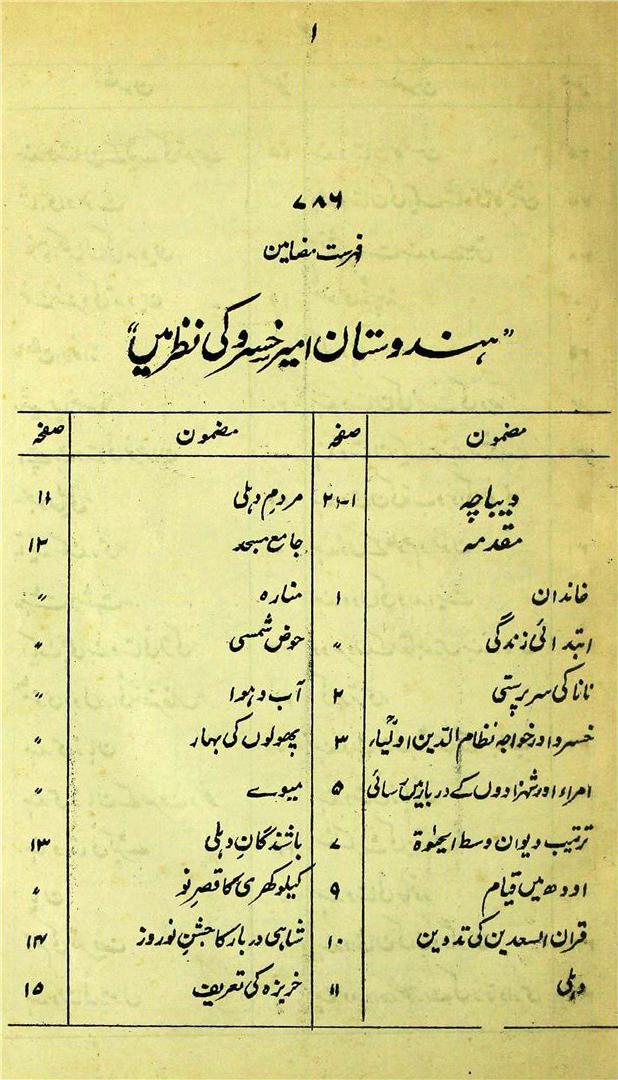 ۱
۷۸۶
فہرست مضامین
"ہندوستان امیر خسرو کی نظر میں"
مضمون صفحہ مضمون صفحہ
دیباچہ ۱-۲۱ مردم دہلی ۱۱
مقدمہ جامع مسجد ۱۲
خاندان ۱ منارہ "
ابتدائی زندگی " حوض شمسی "
نانا کی سرپرستی ۲ آب و ہوا "
خسرو اور خواجہ نظام الدین اولیاؒ ۳ پھولوں کی بہار "
امراء اور شہزادوں کے دربار میں رسائی ۵ میوے "
ترتیب دیوان وسط الحیٰوۃ ۷ باشندگانِ دہلی ۱۳
اودھ میں قیام ۹ کیلوکھری کا قصرِ نو "
قران السعدین کی تدوین ۱۰ شاہی دربار کا جشنِ نوروز ۱۴
دہلی ۱۱ خربزہ کی تعریف ۱۵